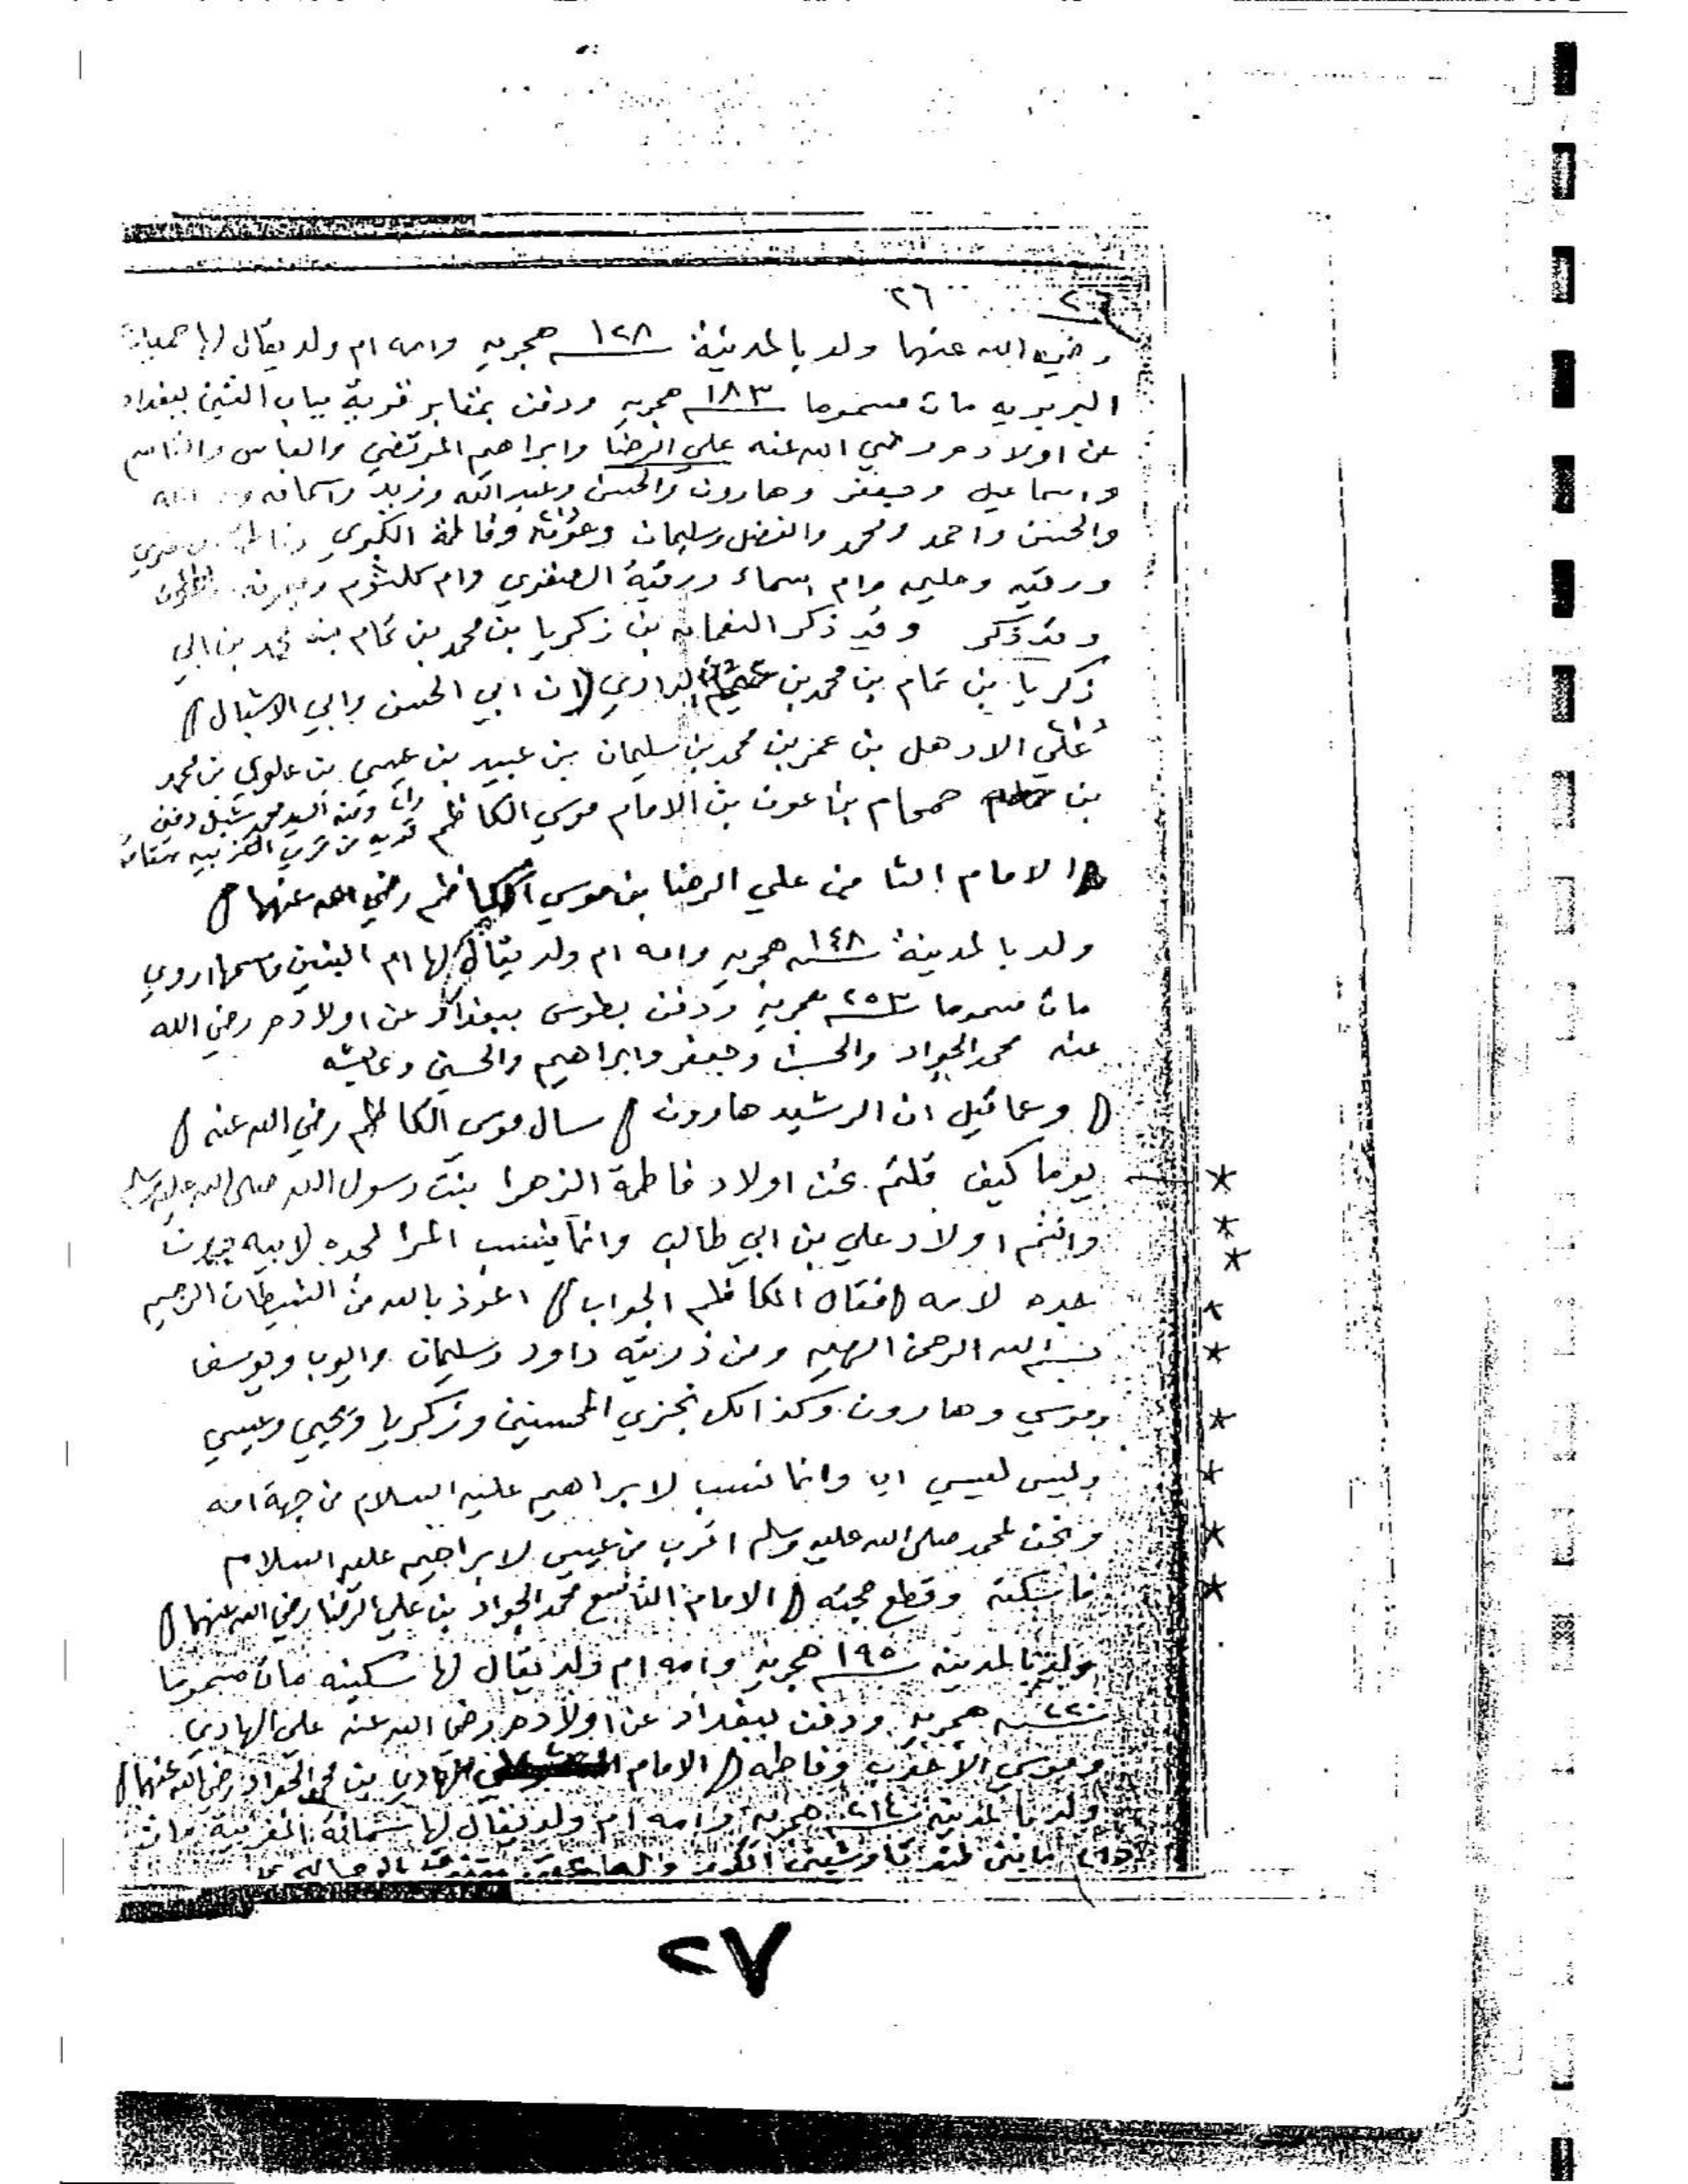 ٢٦ ٢٦
رضي الله عنهما ولد بالمدينة ١٢٨ هجريه وامه ام ولد يقال لها
البربريه مات مسموما ١٨٣ هجريه ودفن بمقابر قرية بباب التين ببغداد
عن اولاده رضي الله عنه علي الرضا وابراهيم المرتضي والعباس والقاسم
واسماعيل وجعفر وهارون والحسن وعبد الله وزيد
والحسن واحمد ومحمد والفضل وسليمان وفاطمة الكبري
ورقيه وحليمه وام اسماء ورقية الصغري وام كلثوم
وقد ذكر وقد ذكر النعمان بن زكريا بن محمد بن تمام بن محمد بن ابي
زكريا بن تمام بن محمد بن الداري ان ابي الحسن وابي الاشبال
علي الاهدل بن عمر بن محمد بن سليمان بن عبيد بن عيسي بن علوي بن محمد
بن حمحام بن عون بن الامام موسي الكاظم
الامام الثامن علي الرضا بن موسي الكاظم رضي الله عنهما
ولد بالمدينة ١٤٨ هجريه وامه ام ولد يقال لها ام البنين واسمها اروي
مات مسموما ٢٥٣ هجريه ودفن بطوس ببغداد عن اولاده رضي الله
عنه محمد الجواد والحسن وجعفر وابراهيم والحسين وعايشه
ومما قيل ان الرشيد هارون سال موسي الكاظم رضي الله عنه
يوما كيف قلتم نحن اولاد فاطمة الزهرا بنت رسول الله صلى الله عليه وسلم *
وانتم اولاد علي بن ابي طالب وانما ينسب المرا لجده لابيه دون *
جده لامه فقال الكاظم الجواب اعوذ بالله من الشيطان الرجيم *
بسم الله الرحمن الرحيم ومن ذريته داود وسليمان وايوب ويوسف *
وموسي وهارون وكذالك نجزي المحسنين وزكريا ويحيي وعيسي *
وليس لعيسي اب وانما نسب لابراهيم عليه السلام من جهة امه *
ونحن لمحمد صلى الله عليه وسلم اقرب من عيسي لابراهيم عليه السلام *
فاسكته وقطع حجته الامام التاسع محمد الجواد بن علي الرضا رضي الله عنهما *
ولد بالمدينه ١٩٥ هجريه وامه ام ولد يقال لها سكينه مات مسموما
٢٢٠ هجريه ودفن ببغداد عن اولاده رضي الله عنه علي الهادي
وموسي وفاطمه الامام الهادي بن محمد الجواد رضي الله عنهما
ولد بالمدينه ٢١٤ هجريه وامه ام ولد يقال لها سمانة المغربية
٢٧